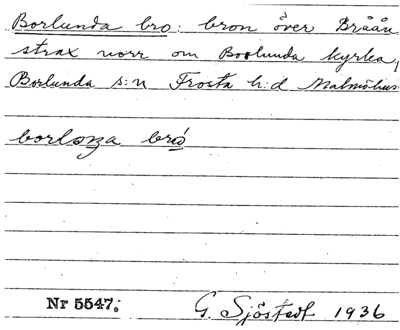 Borlunda bro: bron över Bråån
strax norr om Borlunda kyrka,
Borlunda s:n Frosta h:d Malmöhus
borlonza bró
Nr 5547.
G. Sjöstedt 1936